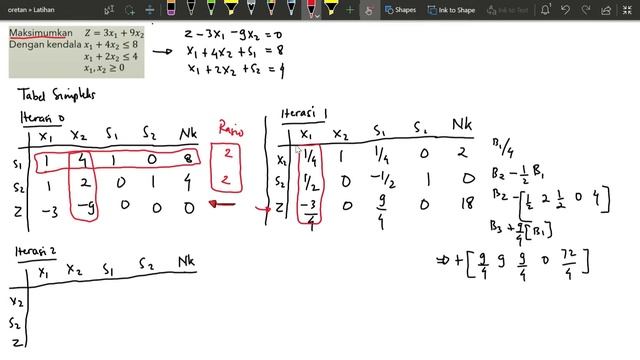 oretan » Latihan
Shapes
Ink to Shape
Ink to Text
Maksimumkan Z = 3x₁ + 9x₂
Dengan kendala x₁ + 4x₂ ≤ 8
x₁ + 2x₂ ≤ 4
x₁, x₂ ≥ 0
Z - 3x₁ - 9x₂ = 0
→ x₁ + 4x₂ + S₁ = 8
x₁ + 2x₂ + S₂ = 4
Tabel Simpleks
Iterasi 0
X₁ X₂ S₁ S₂ Nk Rasio
S₁ 1 4 1 0 8 2
S₂ 1 2 0 1 4 2
Z -3 -9 0 0 0
Iterasi 1
X₁ X₂ S₁ S₂ Nk
X₂ 1/4 1 1/4 0 2 B₁/4
S₂ 1/2 0 -1/2 1 0 B₂ - 1/2 B₁
Z -3/4 0 9/4 0 18
B₂ - [1/2 2 1/2 0 4]
B₃ + 9/4 [B₁]
⇒ + [9/4 9 9/4 0 72/4]
Iterasi 2
X₁ X₂ S₁ S₂ Nk
X₂
S₂
Z